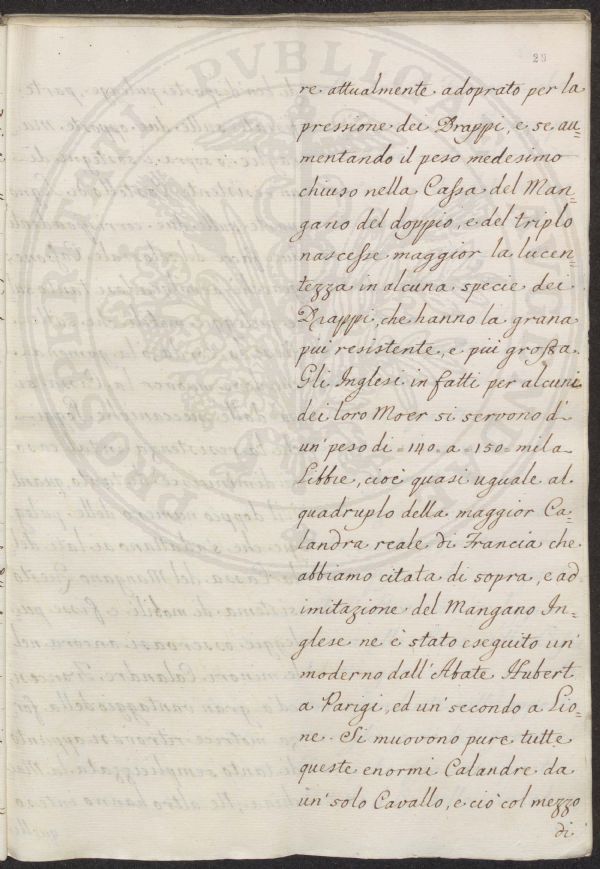 25
re attualmente adoprato per la
pressione dei Drappi, e se au=
mentando il peso medesimo
chiuso nella Cassa del Man=
gano del doppio, e del triplo
nascesse maggior la lucen=
tezza in alcuna specie dei
Drappi, che hanno la grana
più resistente, e più grossa.
Gli Inglesi in fatti per alcuni
dei loro Moer si servono d'
un' peso di =140= a =150= mila
Libbre, cioè quasi uguale al
quadruplo della maggior Ca=
landra reale di Francia che
abbiamo citata di sopra, e ad
imitazione del Mangano In=
glese ne è stato eseguito un'
moderno dall' Abate Hubert
a Parigi, ed un' secondo a Lio=
ne. Si muovono pure tutte
queste enormi Calandre da
un' solo Cavallo, e ciò col mezzo
di